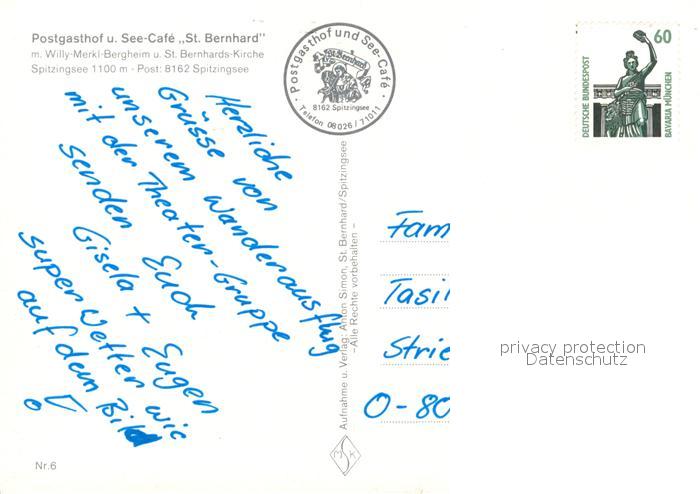 Postgasthof u. See-Café „St. Bernhard"
m. Willy-Merkl-Bergheim u. St. Bernhards-Kirche
Spitzingsee 1100 m - Post: 8162 Spitzingsee
· Postgasthof und See-Café ·
St. Bernhard
8162 Spitzingsee
Telefon 08026 / 71011
60
DEUTSCHE BUNDESPOST
BAVARIA MÜNCHEN
Herzliche
Grüsse von
unserem Wanderausflug
mit der Theater-Gruppe
senden Euch
Gisela + Eugen
super Wetter wie
auf dem Bild
!
Aufnahme u. Verlag: Anton Simon, St. Bernhard/Spitzingsee
– Alle Rechte vorbehalten –
Fam
Tasi
Strie
O-80
privacy protection
Datenschutz
MSK
Nr.6